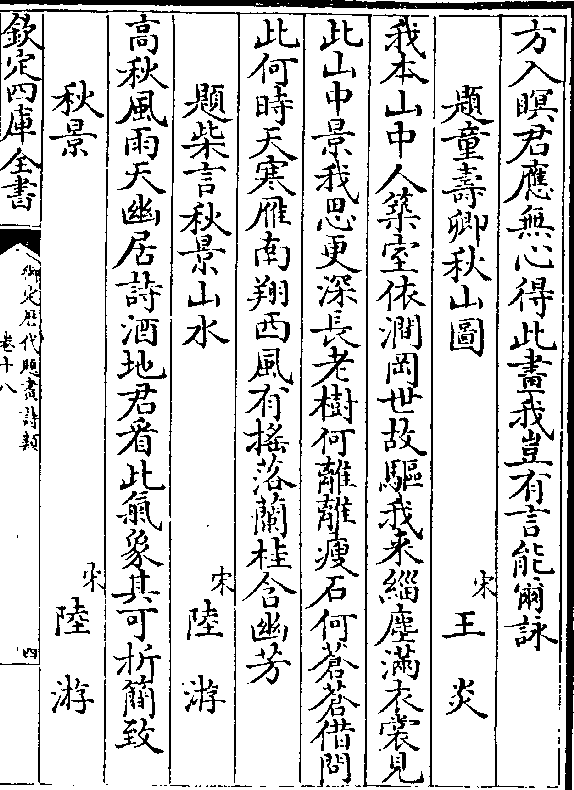 方入瞑君應無心得此畫我豈有言能爾詠
題童壽卿秋山圖　宋王炎
我本山中人築室依澗岡世故驅我来緇塵滿衣裳見
此山中景我思更深長老樹何離離瘦石何蒼蒼借問
此何時天寒雁南翔西風有摇落蘭桂含幽芳
題柴言秋景山水　宋陸游
高秋風雨天幽居詩酒地君看此氣象其可折簡致
秋景　宋陸游
欽定四庫全書
御定歴代題畫詩類
卷十八
四